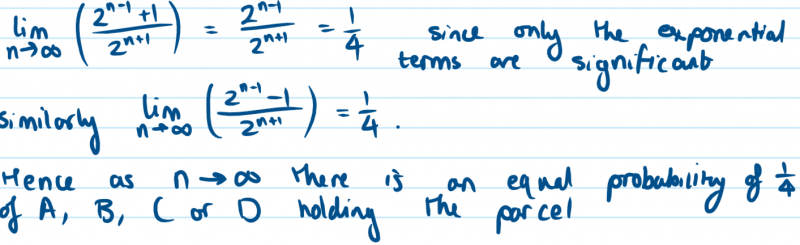 lim n→∞ ( (2^{n-1} + 1) / 2^{n+1} ) = 2^{n-1} / 2^{n+1} = 1/4 since only the exponential
terms are significant
similarly lim n→∞ ( (2^{n-1} - 1) / 2^{n+1} ) = 1/4 .
Hence as n → ∞ there is an equal probability of 1/4
of A, B, C or D holding the parcel